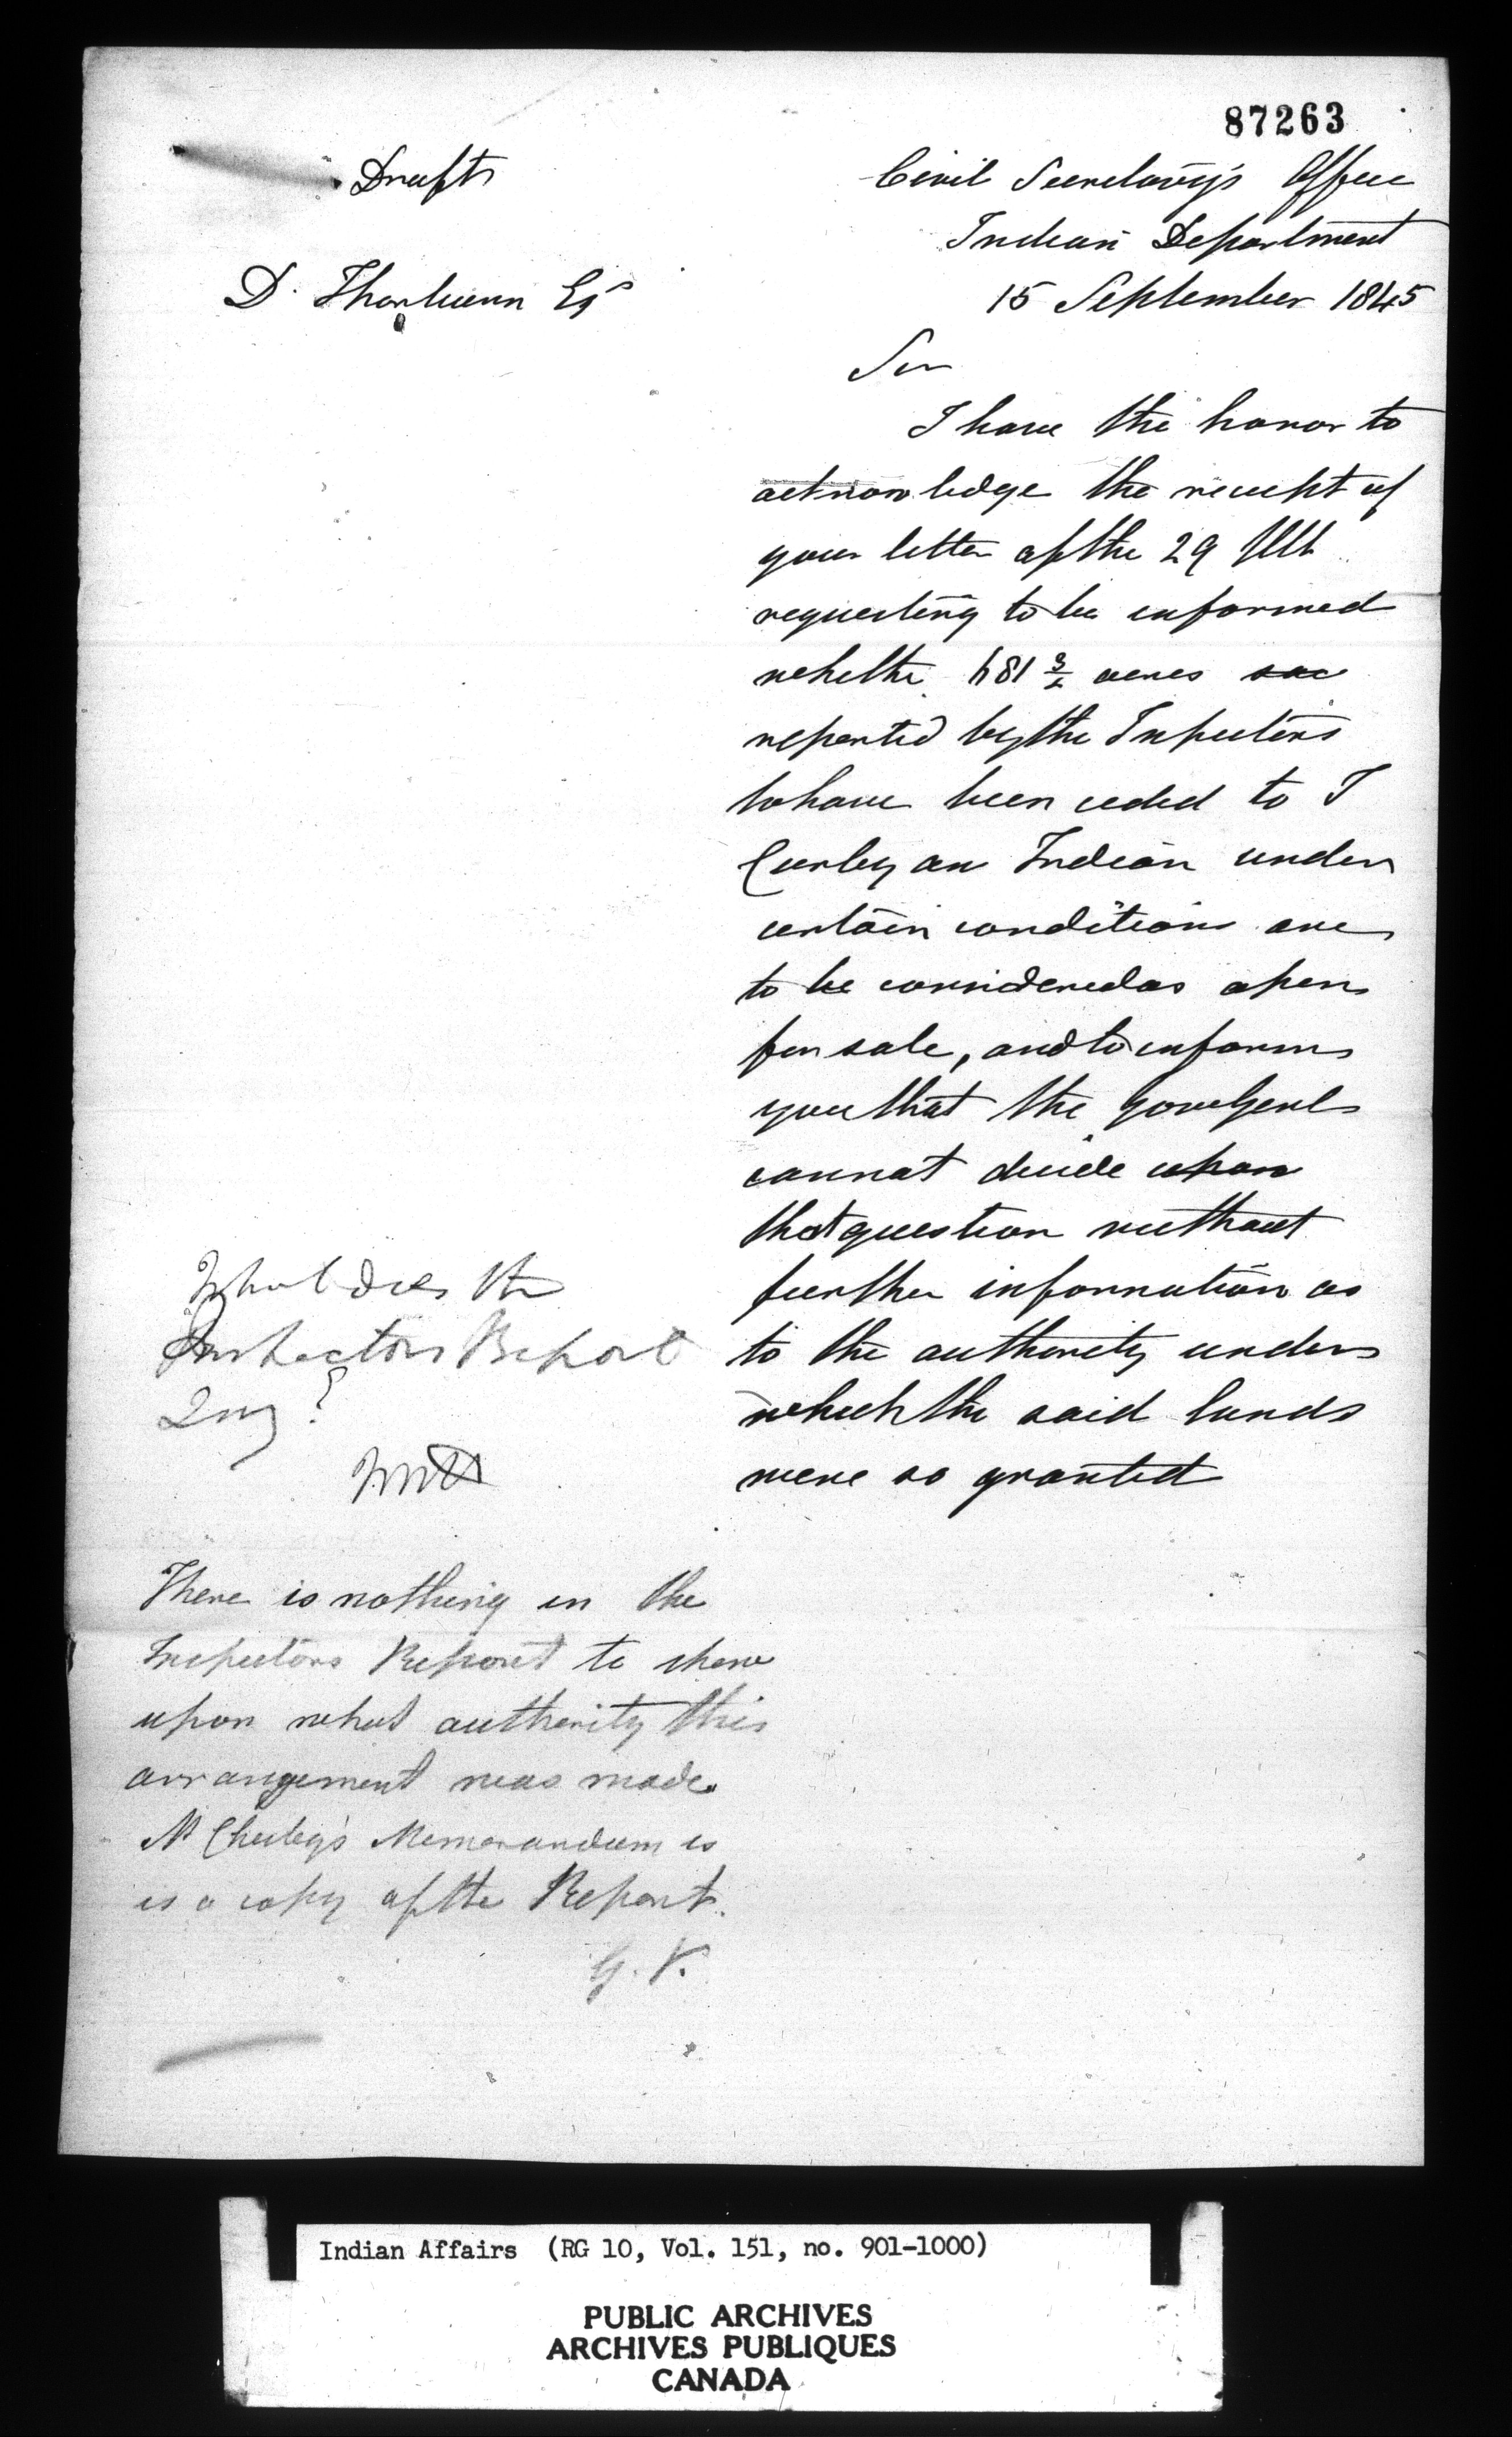 87263
Draft
Civil Secretary's Office
Indian Department
15 September 1845
D. Thorburn Esqr
Sir
I have the honor to
acknowledge the receipt of
your letter of the 29 Ult
requesting to be informed
whether 81 acres
reported by the Inspectors
to have been ceded to J
Curley an Indian under
certain conditions are
to be considered as open
for sale, and to inform
you that the Gov Genl
cannot decide upon
that question without
further information as
to the authority under
which the said lands
were so granted
What does the
Inspectors Report
say?
There is nothing in the
Inspectors Report to shew
upon what authority this
arrangement was made.
Mr Memorandum is
is a copy of the Report.
G. V.
Indian Affairs (RG 10, Vol. 151, no. 901-1000)
PUBLIC ARCHIVES
ARCHIVES PUBLIQUES
CANADA